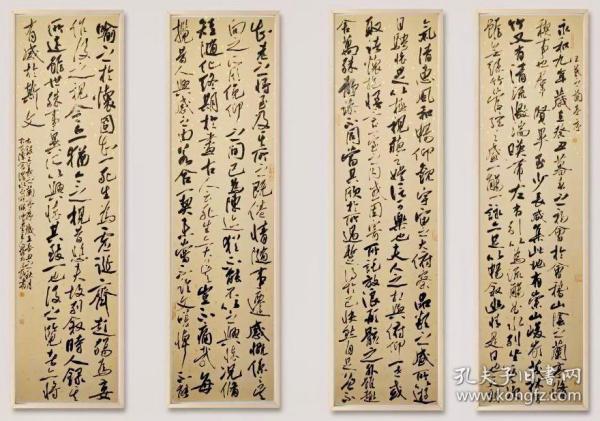 王羲之蘭亭序
永和九年歲在癸丑暮春之初會於會稽山陰之蘭亭脩
禊事也羣賢畢至少長咸集此地有崇山峻嶺茂林脩
竹又有清流激湍暎帶左右引以為流觴曲水列坐其次
雖無絲竹管絃之盛一觴一詠亦足以暢敘幽情是日也天朗
氣清惠風和暢仰觀宇宙之大俯察品類之盛所以遊
目騁懷足以極視聽之娛信可樂也夫人之相與俯仰一世或
取諸懷抱悟言一室之內或因寄所託放浪形骸之外雖趣
舍萬殊靜躁不同當其欣於所遇暫得於己快然自足不知
老之將至及其所之既倦情隨事遷感慨係之矣
向之所欣俛仰之間已為陳迹猶不能不以之興懷況脩
短隨化終期於盡古人云死生亦大矣豈不痛哉每
攬昔人興感之由若合一契未嘗不臨文嗟悼不能
喻之於懷固知一死生為虛誕齊彭殤為妄
作後之視今亦猶今之視昔悲夫故列敘時人錄其
所述雖世殊事異所以興懷其致一也後之覽者亦將
有感於斯文
孔夫子旧书网
www.kongfz.com